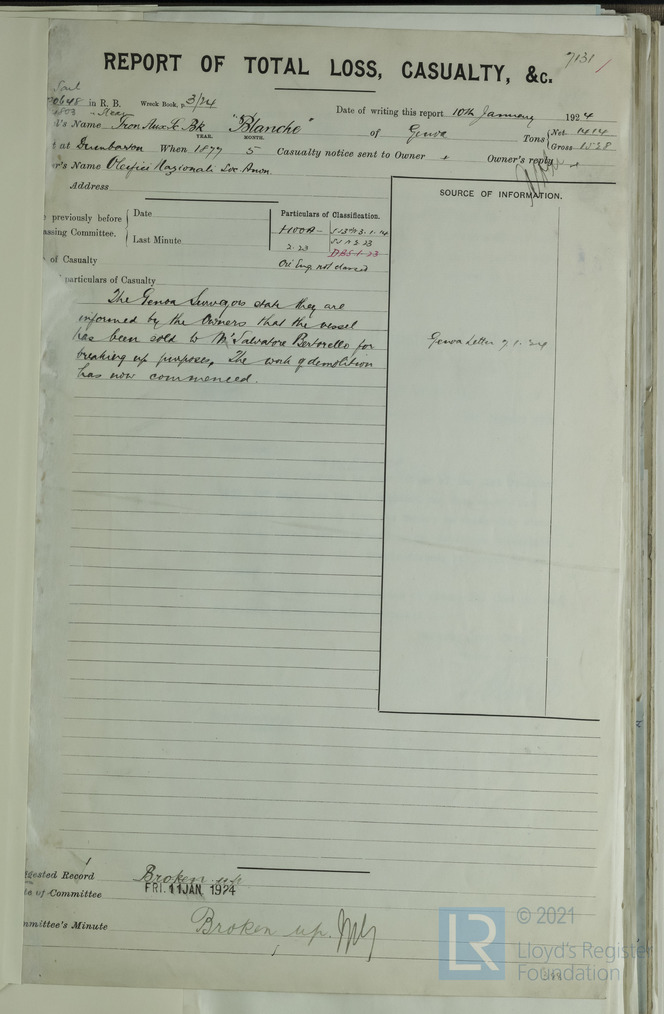 7131
REPORT OF TOTAL LOSS, CASUALTY, &c.
Sail
0648 in R. B. Wreck Book, p. 3/24
Date of writing this report 10th January 1924
's Name Iron Aux Sc Bk "Blanche" of Genoa Tons { Net 1414
Gross 1538
YEAR. MONTH.
t at Dumbarton When 1877 5 Casualty notice sent to Owner + Owner's reply +
er's Name Oleifici Nazionali Soc. Anon.
Address
SOURCE OF INFORMATION.
previously before { Date
assing Committee. Last Minute
Particulars of Classification.
100A-
2.23
SS No 2.23
DBS 1.23
Oil Eng. not classed
of Casualty
particulars of Casualty
The Genoa Surveyors state they are
informed by the Owners that the vessel
has been sold to Mr Salvatore Bertorello for
breaking up purposes. The work of demolition
has now commenced.
Genoa Letter 7.1.24
gested Record Broken up
te of Committee FRI. 11 JAN 1924
mmittee's Minute Broken up.
LR
© 2021
Lloyd's Register
Foundation